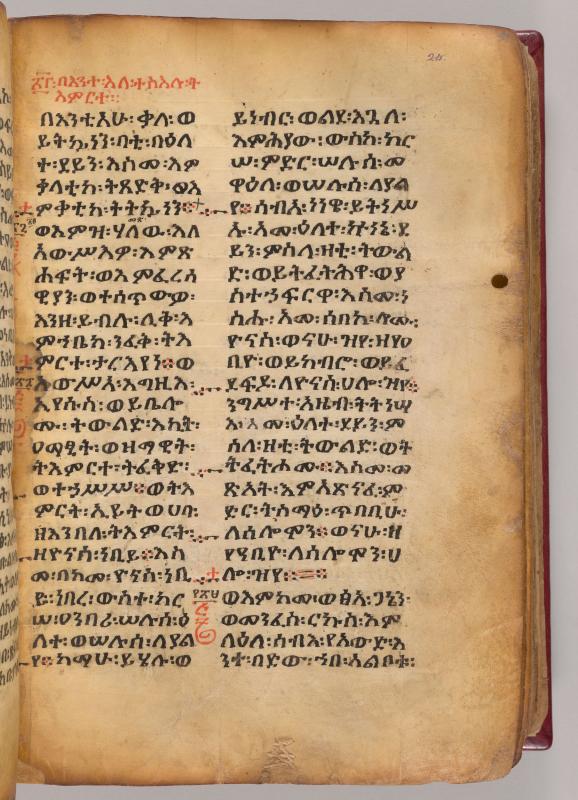 በእንተ፡እለ፡ተስእሉ፡ት
እምርተ፡፡
በእንቲአሁ፡ቃለ፡ወ
ይትኴነን፡በቲ፡በዕለ
ተ፡ደይን፡እስመ፡እም
ቃላቲከ፡ትጸድቅ፡ወእ
ምቃቲከ፡ትትኴነን፡
ወእምዝ፡ሃለው፡እለ
አውሥእዎ፡እምጸ
ሐፍት፡ወእምፈረሰ
ዊያን፡ወተሰጥውዎ፡
እንዘ፡ይብሉ፡ሊቅ፡እ
ምኀቤከ፡ንፈቅ፡ትእ
ምርተ፡ታርእየነ፡ወ
አውሥአ፡እግዚእ፡
ኢየሱስ፡ወይቤሎ
ሙ፡ትውልድ፡እኪት፡
ወዘማዊት፡
ትእምርተ፡ትፈቅድ፡
ወተኃሥሥ፡ወትእ
ምርት፡ኢይትወሀባ፡
ዘእንበለ፡ትእምርት፡
ዘዮናስ፡ነቢይ፡እስ
መ፡በከመ፡ዮናስ፡ነቢ
ይ፡ነበረ፡ውስተ፡ከር
ሠ፡ዐንበሪ፡ሠሉሰ፡ዕ
ለተ፡ወሠሉሰ፡ለያል
የ፡ከማሁ፡ይሄሉ፡ወ
ይነብር፡ወልደ፡እጓለ፡
እምሕያው፡ውስከ፡ከር
ሠ፡ምድር፡ሠሉሰ፡መ
ዋዕለ፡ወሠሉሰ፡ለያል
የ፡ሰብአ፡ነነዌ፡ይትነሥ
ኡ፡አመ፡ዕለተ፡ኵነኔ፡
ይን፡ምስለ፡ዛቲ፡ትውል
ድ፡ወይትፈትሕዋ፡ወያ
ስተኃፍርዋ፡እስመ፡ነ
ስሑ፡አመ፡ሰበከ፡ሎሙ፡
ዮናስ፡ወናሁ፡ዝየ፡ዘየዐ
ቢዮ፡ወይከብሮ፡ወይፈ
ደፍደ፡ለዮናስ፡ሀሎ፡ዝየ፡
ንግሥተ፡አዜብ፡ትትነሣ
እ፡አመ፡ዕለተ፡ደይን፡ም
ስለ፡ዛቲ፡ትውልድ፡ወት
ትፈትሖሙ፡እስመ፡መ
ጽአት፡እምአጽናፈ፡ም
ድር፡ትስማዕ፡ጥበቢሁ፡
ለሰሎሞን፡ወናሁ፡ዘ
የዓቢዮ፡ለሰሎሞን፡ሀ
ሎ፡ዝየ፡
ወእምከመ፡ወፅአ፡ጋኔን፡
ወመንፈስ፡ርኩስ፡እም
ላዕለ፡ሰብእ፡የአውድ፡እ
ንተ፡በድው፡ኀበ፡አልቦቱ፡